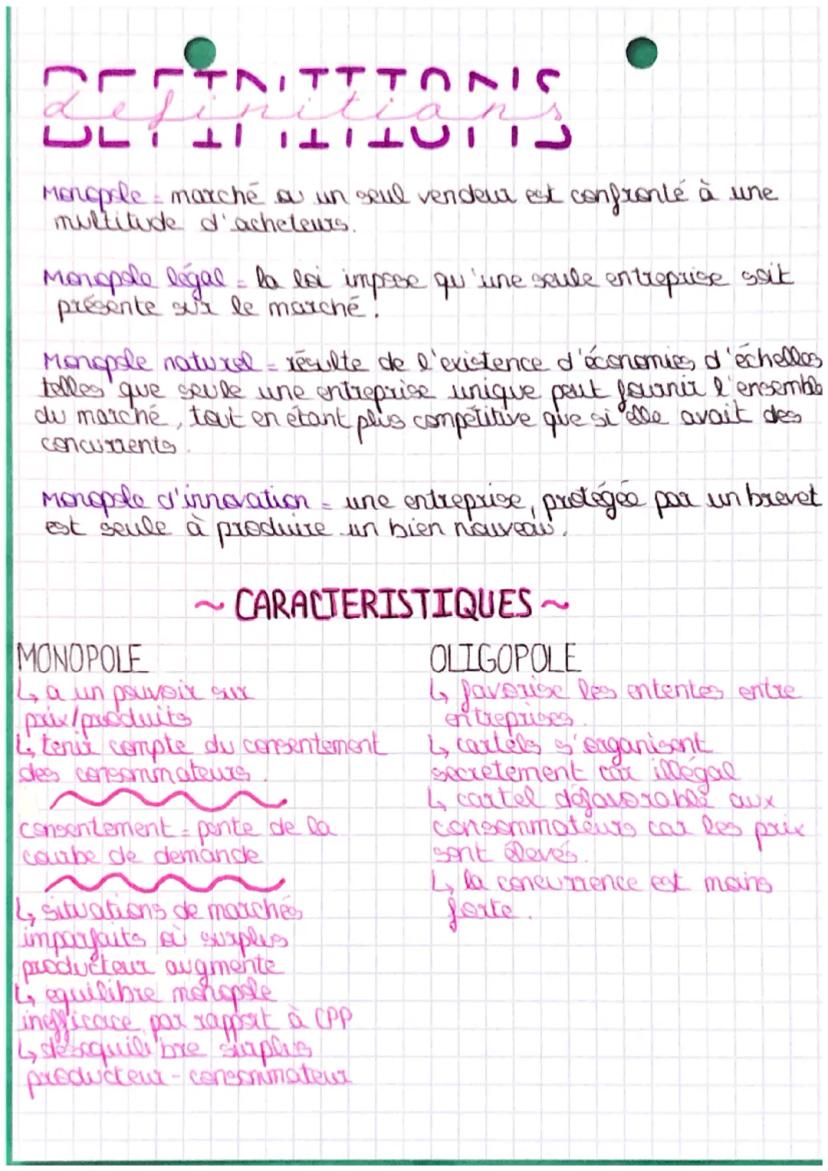 DEFINITIONS
definitions
Monopole = marché où un seul vendeur est confronté à une
multitude d'acheteurs.
Monopole légal = la loi impose qu'une seule entreprise soit
présente sur le marché.
Monopole naturel = résulte de l'existence d'économies d'échelles
telles que seule une entreprise unique peut fournir l'ensemble
du marché, tout en étant plus compétitive que si elle avait des
concurrents.
Monopole d'innovation = une entreprise, protégée par un brevet
est seule à produire un bien nouveau.
~ CARACTERISTIQUES ~
MONOPOLE
↳ a un pouvoir sur
prix/produits
↳ tenir compte du consentement
des consommateurs.
consentement = pente de la
courbe de demande
↳ situations de marchés
imparfaits où surplus
producteur augmente
↳ equilibre monopole
inefficace par rapport à CPP
↳ desequilibre surplus
producteur - consommateur
OLIGOPOLE
↳ favorise les ententes entre
entreprises.
↳ cartels s'organisent
secretement car illégal
↳ cartel défavorable aux
consommateurs car les prix
sont élevés.
↳ la concurrence est moins
forte.